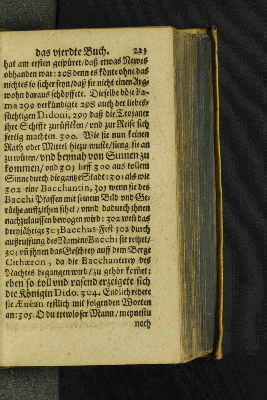 das vierdte Buch. 223
hat am ersten gespüret/ daß etwas Newes
obhanden war: 298 denn es könte ohne das
nichtes so sicher seyn/ daß sie nicht einen Arg-
wohn daraus schöpffete. Dieselbe böse Fa-
ma 299 verkündigte 298 auch der liebes-
süchtigen Didoni, 299 daß die Trojaner
ihre Schiffe zurüsteten/ und zur Reise sich
fertig machten. 300. Wie sie nun keinen
Rath oder Mittel hiezu wuste/ fieng sie an
zu wüten/ und beynah von Sinnen zu
kommen/ und 301 lieff 300 aus tollem
Sinne durch die gantze Stadt: 301 als wie
302 eine Bacchantin, 303 wenn sie des
Bacchi Pfaffen mit seinem Bild und Ge-
räthe auffziehen sihet/ unnd dadurch ihnen
nachzulauffen bewogen wird: 302 weil das
dreyjährige 303 Bacchus-Fest 302 durch
auffruffung des Namens Bacchi sie reitzet/
303 uñ ihnen das Geschrey auff dem Berge
Cithæron, da die Bacchanterey des
Nachtes begangen wird/ zu gehör komet:
eben so toll und rasend erzeigete sich
die Königin Dido. 304. Endlich redete
sie Æneam erstlich mit folgenden Worten
an: 305. O du trewloser Mann/ meynestu
noch